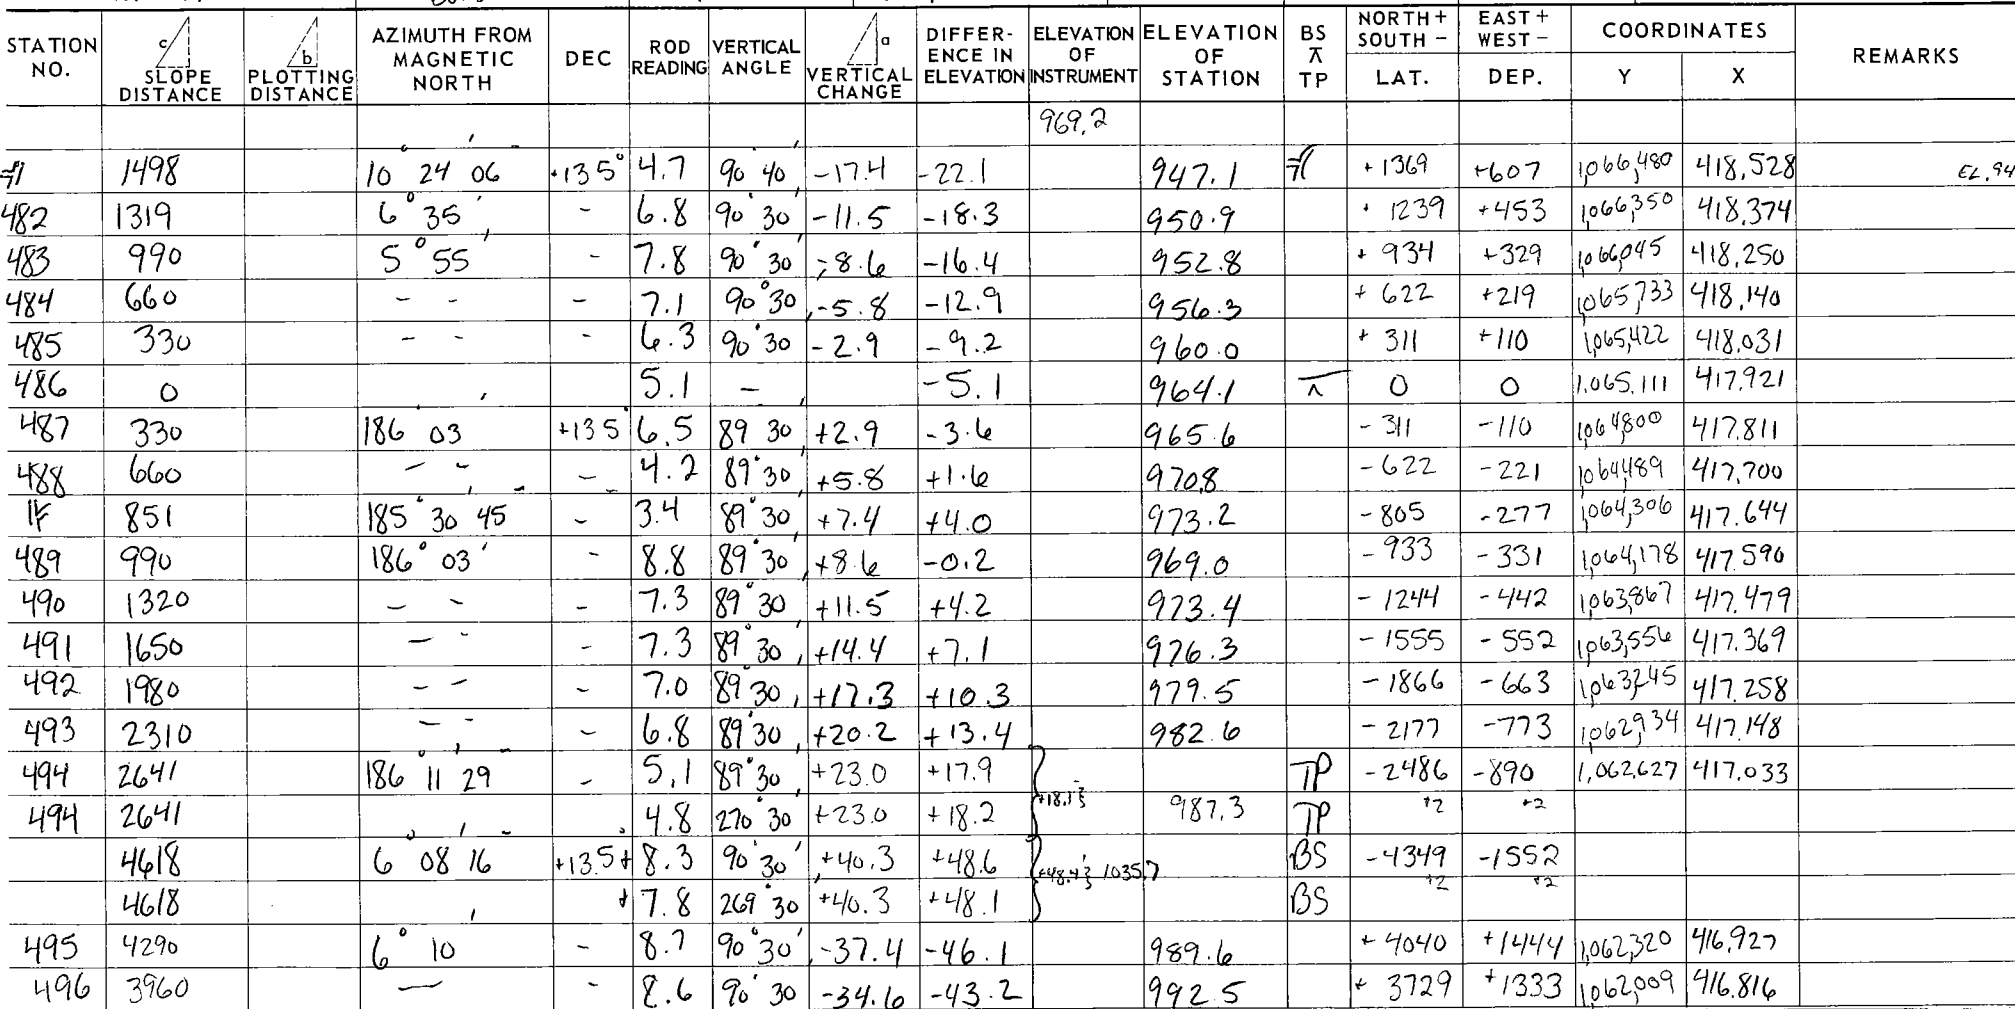 STATION NO. | c SLOPE DISTANCE | b PLOTTING DISTANCE | AZIMUTH FROM MAGNETIC NORTH | DEC | ROD READING | VERTICAL ANGLE | a VERTICAL CHANGE | DIFFER-ENCE IN ELEVATION | ELEVATION OF INSTRUMENT | ELEVATION OF STATION | BS ⊼ TP | NORTH + SOUTH - LAT. | EAST + WEST - DEP. | COORDINATES Y | X | REMARKS
969.2
1498 10° 24' 06" +13.5° 4.7 90° 40' -17.4 -22.1 947.1 +1369 +607 1,066,480 418,528 EL. 94
482 1319 6° 35' - 6.8 90° 30' -11.5 -18.3 950.9 + 1239 +453 1,066,350 418,374
483 990 5° 55' - 7.8 90° 30' -8.6 -16.4 952.8 + 934 +329 1,066,045 418,250
484 660 - - - 7.1 90° 30' -5.8 -12.9 956.3 + 622 +219 1,065,733 418,140
485 330 - - - 6.3 90° 30' -2.9 -9.2 960.0 + 311 +110 1,065,422 418,031
486 0 5.1 - -5.1 964.1 ⊼ 0 0 1,065,111 417,921
487 330 186° 03' +13.5° 6.5 89° 30' +2.9 -3.6 965.6 - 311 -110 1,064,800 417,811
488 660 - - - 4.2 89° 30' +5.8 +1.6 970.8 -622 -221 1,064,489 417,700
851 185° 30' 45" - 3.4 89° 30' +7.4 +4.0 973.2 -805 -277 1,064,306 417,644
489 990 186° 03' - 8.8 89° 30' +8.6 -0.2 969.0 -933 -331 1,064,178 417,590
490 1320 - - - 7.3 89° 30' +11.5 +4.2 973.4 - 1244 -442 1,063,867 417,479
491 1650 - - - 7.3 89° 30' +14.4 +7.1 976.3 - 1555 - 552 1,063,556 417,369
492 1980 - - - 7.0 89° 30' +17.3 +10.3 979.5 - 1866 -663 1,063,245 417,258
493 2310 - - - 6.8 89° 30' +20.2 +13.4 982.6 - 2177 -773 1,062,934 417,148
494 2641 186° 11' 29" - 5.1 89° 30' +23.0 +17.9 TP -2486 -890 1,062,627 417,033
494 2641 4.8 270° 30' +23.0 +18.2 +18.1 987.3 TP +2 +2
4618 6° 08' 16" +13.5° + 8.3 90° 30' +40.3 +48.6 +48.4 1035.7 BS -4349 -1552
4618 + 7.8 269° 30' +40.3 +48.1 BS +2 +2
495 4290 6° 10' - 8.7 90° 30' -37.4 -46.1 989.6 + 4040 +1444 1,062,320 416,927
496 3960 — - 8.6 90° 30' -34.6 -43.2 992.5 + 3729 +1333 1,062,009 416,816